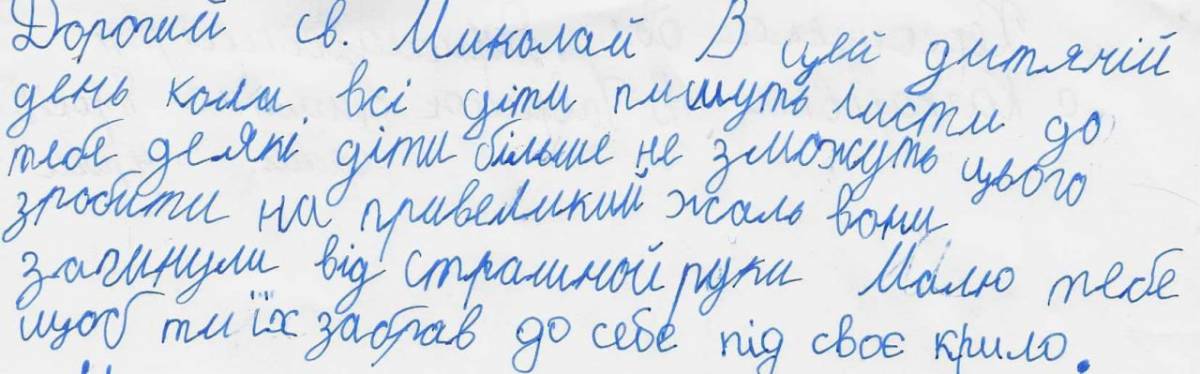 Дорогий св. Миколай В цей дитячий
день коли всі діти пишуть листи до
тебе деякі діти більше не зможуть цього
зробити на привеликий жаль вони
загинули від страшной руки Малю тебе
щоб ти їх забрав до себе під своє крило.